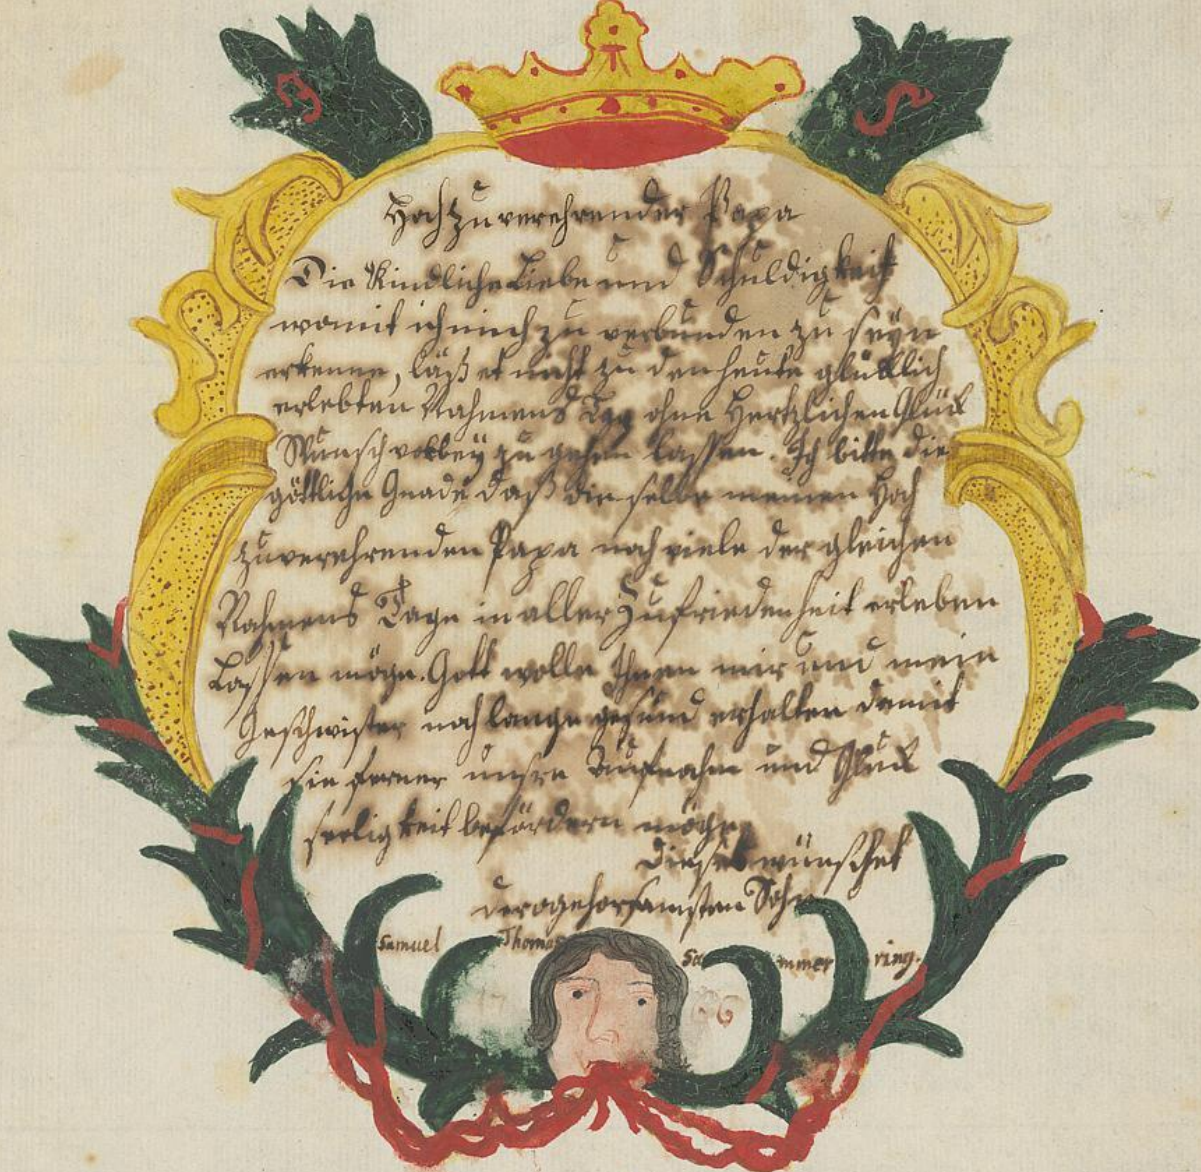 Hochzuverehrender Papa
Die Kindliche Liebe und Schuldigkeit
womit ich mich zu verbunden zu seyn
erkenne, läßet nicht zu den heute glücklich
erlebten Nahmens Tag ohne Hertzlichen Glück
Wunsch vorbey zu gehen lassen. Ich bitte die
göttliche Gnade daß dieselbe meinen Hoch
zuverehrenden Papa noch viele der gleichen
Nahmens Tage in aller Zufriedenheit erleben
Lassen möge. Gott wolle Ihnen mir und mein
Geschwister noch lange gesund erhalten damit
sie ferner unsre Aufnahm und Glück
seeligkeit befördern möge
Dieses wünschet
dero gehorsamsten Sohn
Samuel Thomas mmer ring.